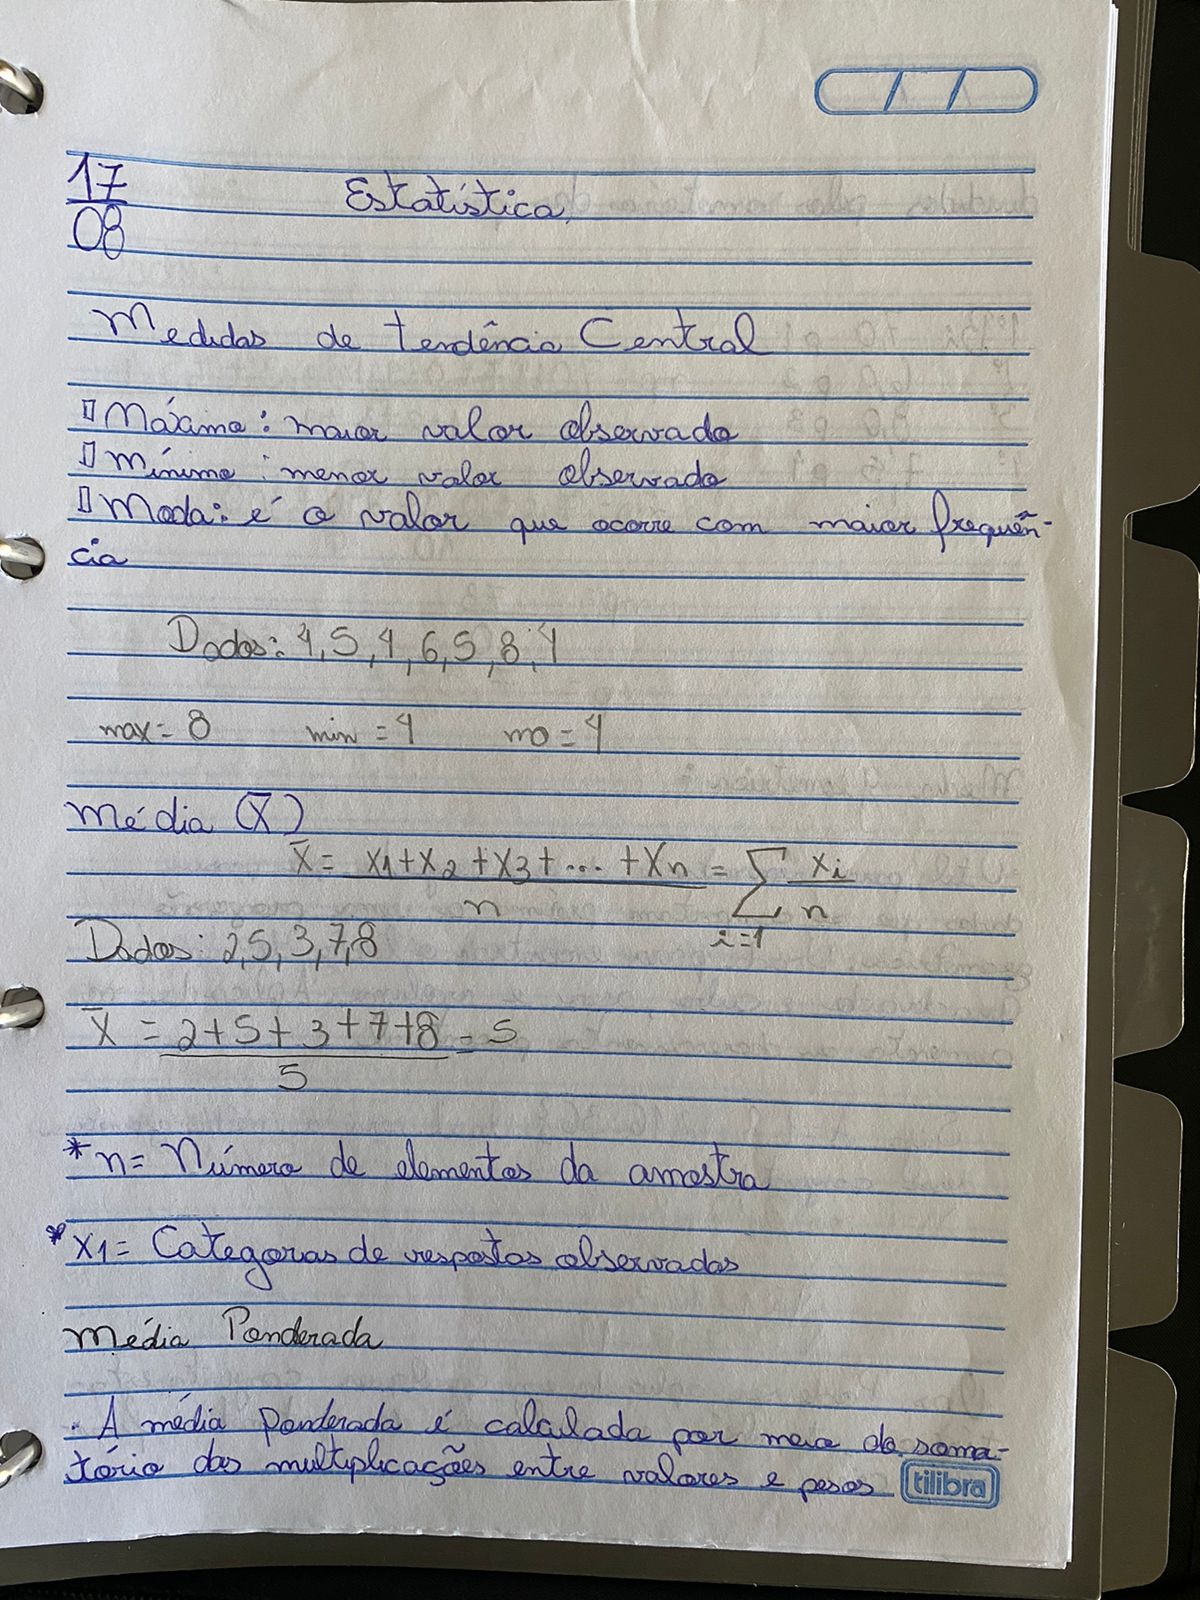 17
08
Estatística
Medidas de tendência Central
Máximo: maior valor observado
Mínimo: menor valor observado
Moda: é o valor que ocorre com maior frequên-
cia
Dados: 4, 5, 4, 6, 5, 8, 4
max = 8 min = 4 mo = 4
Média (X̅)
X̅ = x1 + x2 + x3 + ... + xn = ∑ xi
n i=1 n
Dados: 2, 5, 3, 7, 8
X̅ = 2 + 5 + 3 + 7 + 8 = 5
5
* n = Número de elementos da amostra
* X1 = Categorias de respostas observadas
Média Ponderada
. A média Ponderada é calculada por meio do soma-
tório das multiplicações entre valores e pesos
tilibra